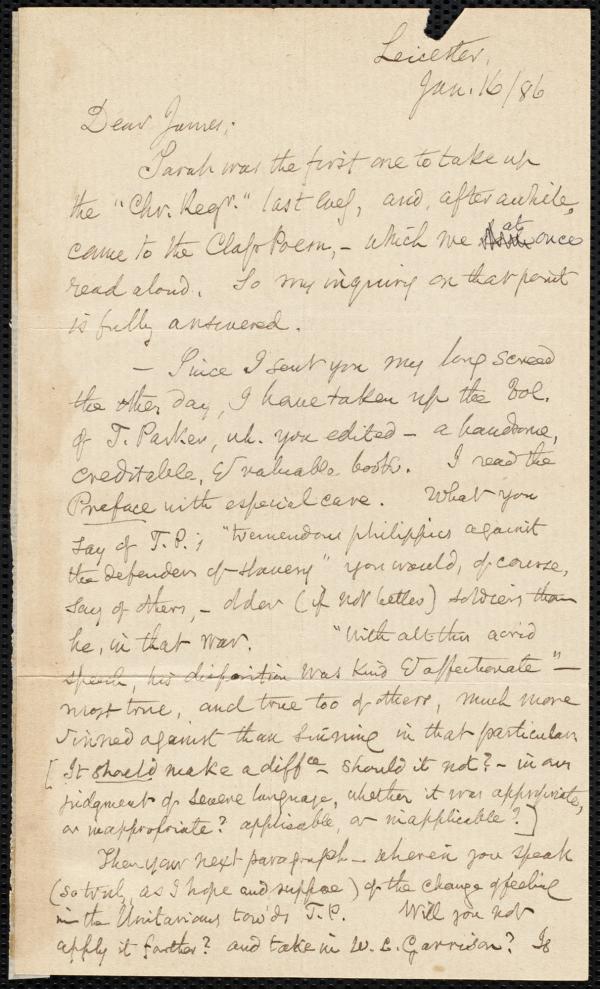 Leicester,
Jan. 16/86
Dear James;
Sarah was the first one to take up
the "Chr. Regr." last evg, and, after awhile,
came to the Class Poem, – which we at once
read aloud. So my inquiry on that point
is fully answered.
– Since I sent you my long screed
the other day, I have taken up the Vol.
of T. Parker, wh. you edited – a handsome,
creditable, & valuable book. I read the
Preface with especial care. What you
say of T.P.'s "tremendous philippics against
the defenders of slavery" you would, of course,
say of others, – older (if not better) soldiers than
he, in that war. "With all this acrid
speech, his disposition was kind & affectionate" –
most true, and true too of others, much more
sinned against than sinning in that particular.
[It should make a diffce – should it not? – in our
judgment of severe language, whether it was appropriate,
or inappropriate? applicable, or inapplicable?]
Then your next paragraph – wherein you speak
(so truly, as I hope and suppose) of the change of feeling
in the Unitarians tow'ds T.P. Will you not
apply it farther? and take in W. L. Garrison? Is